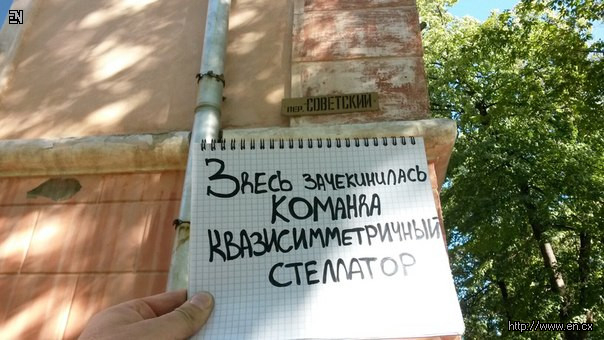 EN
пер. СОВЕТСКИЙ
Здесь зачекинилась
команда
квазисимметричный
стелматор
http://www.en.cx